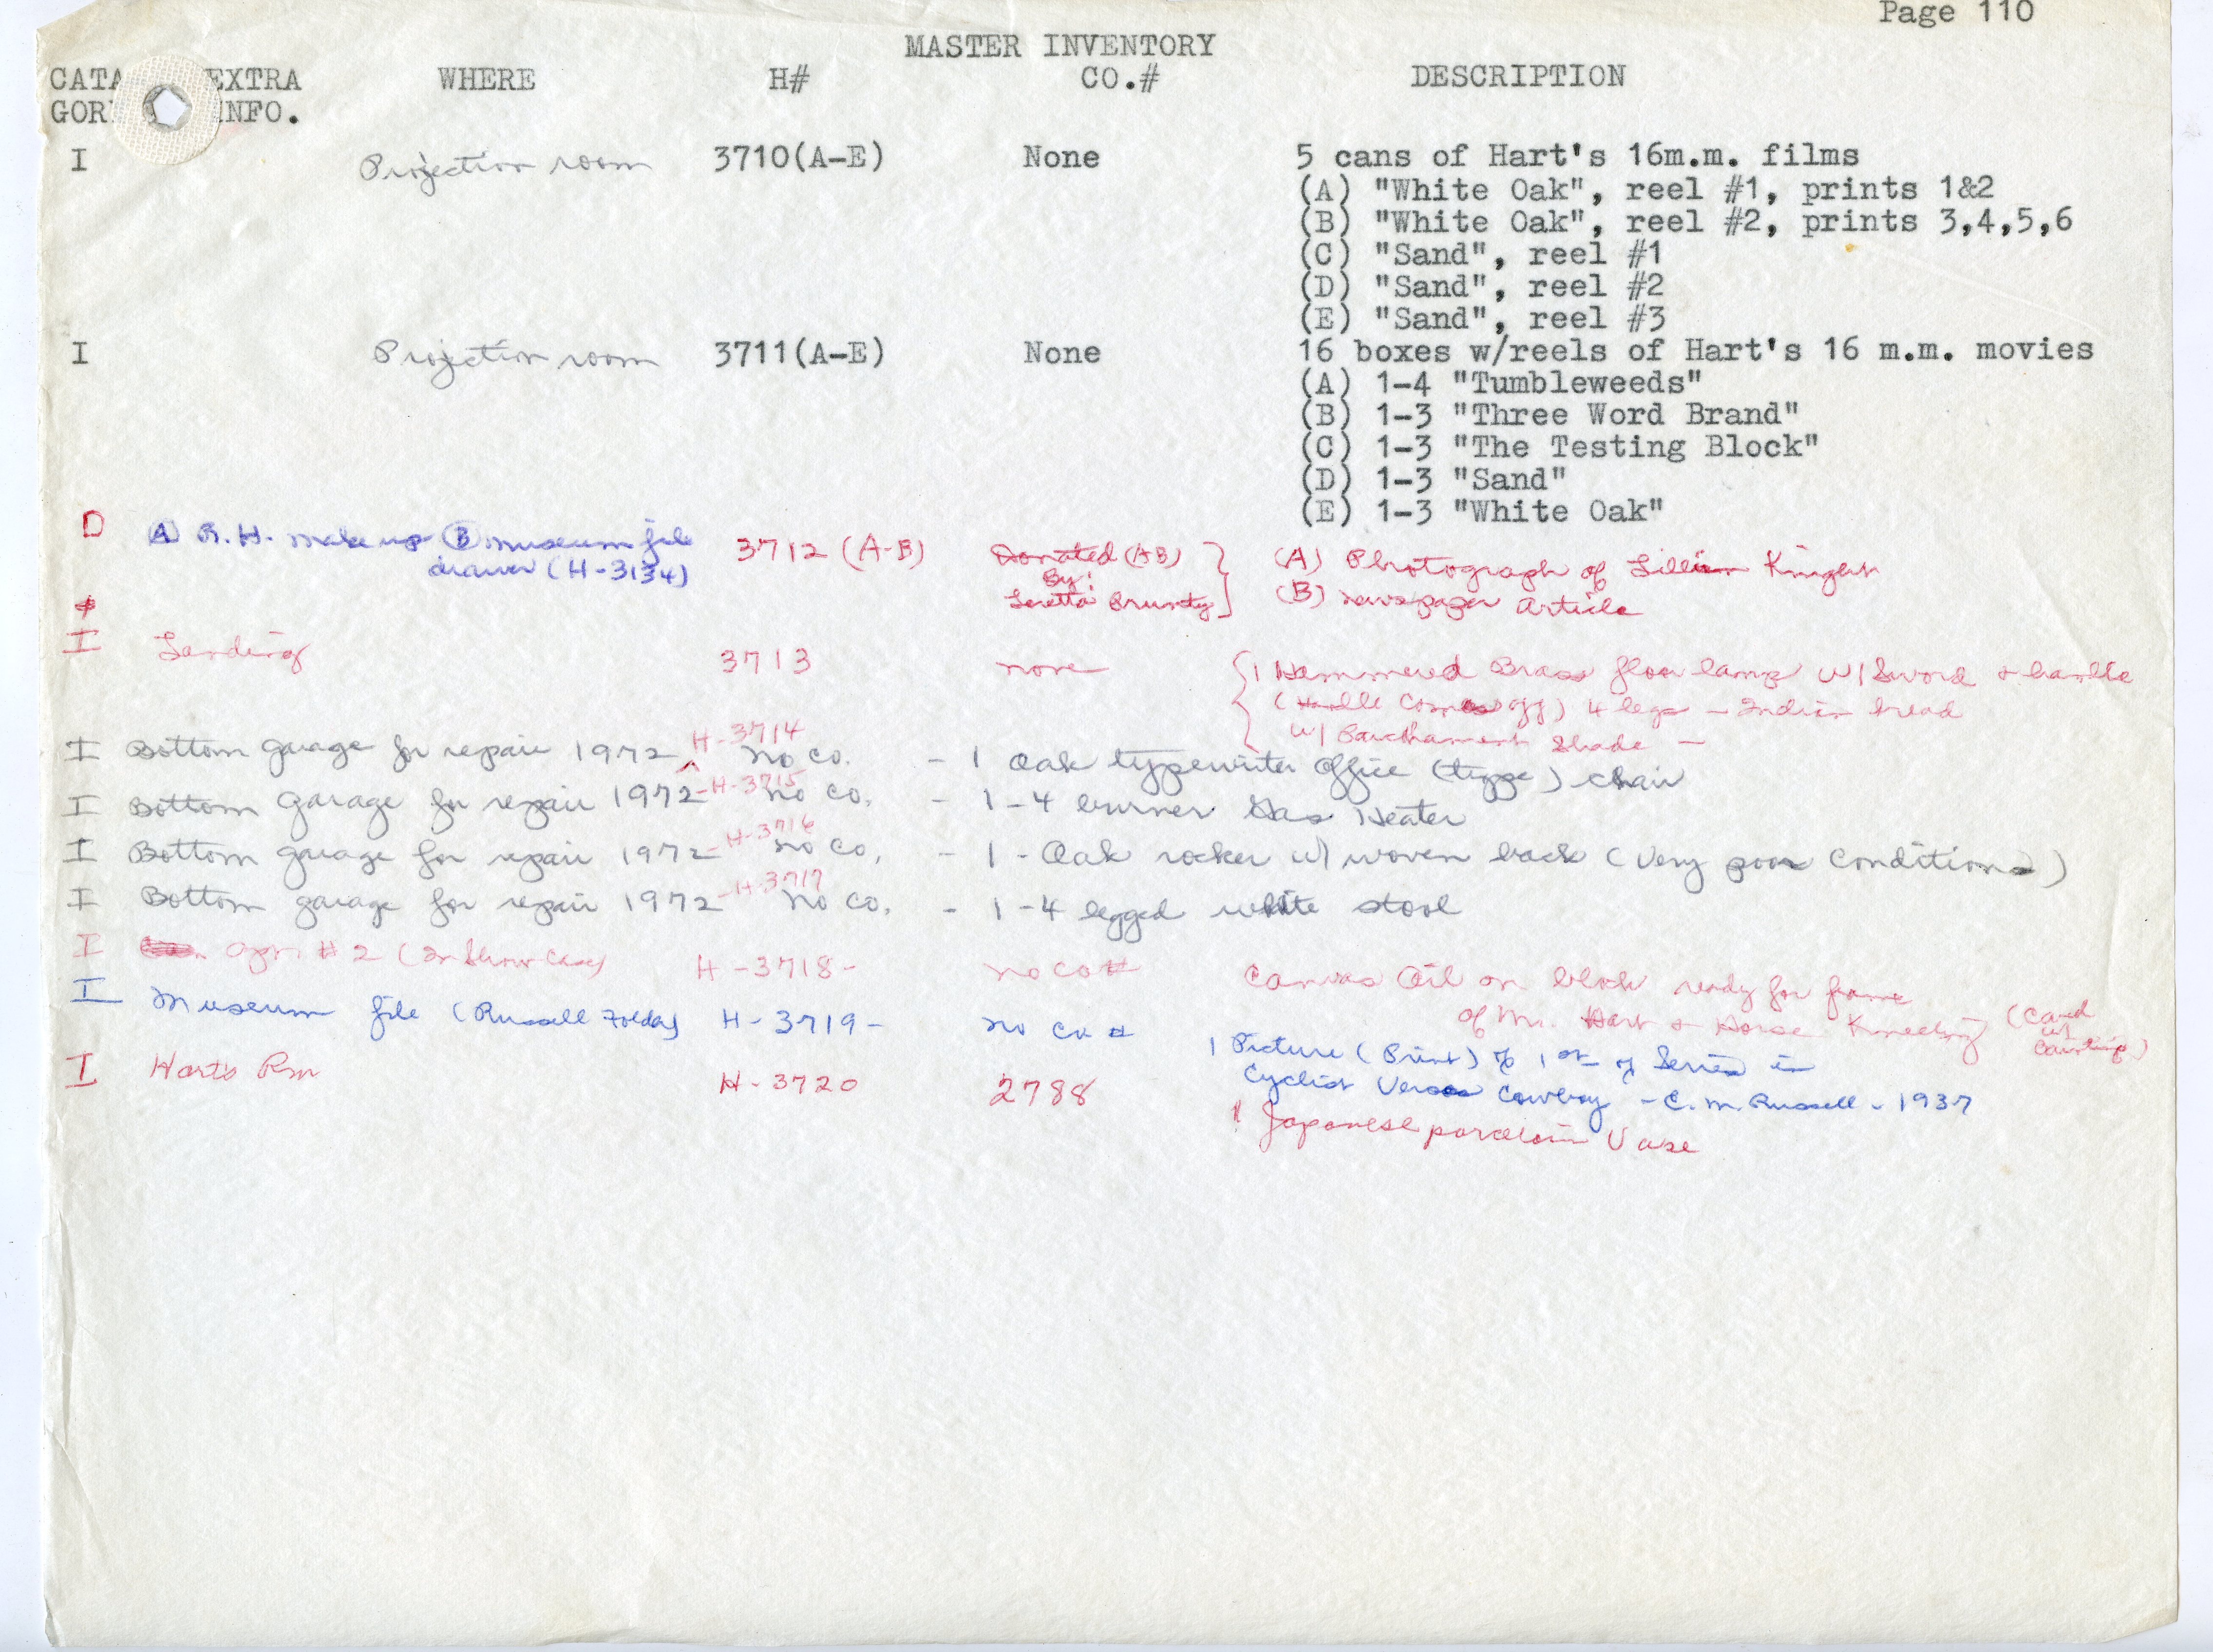 Page 110
MASTER INVENTORY
CATA EXTRA WHERE H# CO.# DESCRIPTION
GOR INFO.
I Projection room 3710(A-E) None 5 cans of Hart's 16m.m. films
(A) "White Oak", reel #1, prints 1&2
(B) "White Oak", reel #2, prints 3,4,5,6
(C) "Sand", reel #1
(D) "Sand", reel #2
(E) "Sand", reel #3
I Projection room 3711(A-E) None 16 boxes w/reels of Hart's 16 m.m. movies
(A) 1-4 "Tumbleweeds"
(B) 1-3 "Three Word Brand"
(C) 1-3 "The Testing Block"
(D) 1-3 "Sand"
(E) 1-3 "White Oak"
D (A) R.H. Make up (B) Museum file 3712 (A-B) Donated (AB) (A) Photograph of Lillian Knight
drawer (H-3134) By: (B) Newspaper Article
Loretta Brunty
I Landing 3713 none 1 Hammered Brass floor lamp w/ Sword & handle
(Handle Comes off) 4 legs - Indian head
w/ Parchament Shade -
I Bottom garage for repair 1972 H-3714 No co. - 1 Oak typewriter office (type) chair
I Bottom garage for repair 1972 -H-3715 No co. - 1-4 burner Gas Heater
I Bottom garage for repair 1972 -H-3716 No co. - 1 - Oak rocker w/ woven back (very poor condition)
I Bottom garage for repair 1972 -H-3717 No co. - 1-4 legged white stool
I # 2 (In Show Case) H-3718- no co# Canvas Oil on block ready for frame
of Mr. Hart & Horse Kneeling (Card w/ Painting)
I Museum file (Russell Folder) H-3719- no co # 1 Picture (Print) of 1st of Series in
Cyclist Versus Cowboy - C.M. Russell - 1937
I Hart's Rm H-3720 2788 1 Japanese porcelain Vase